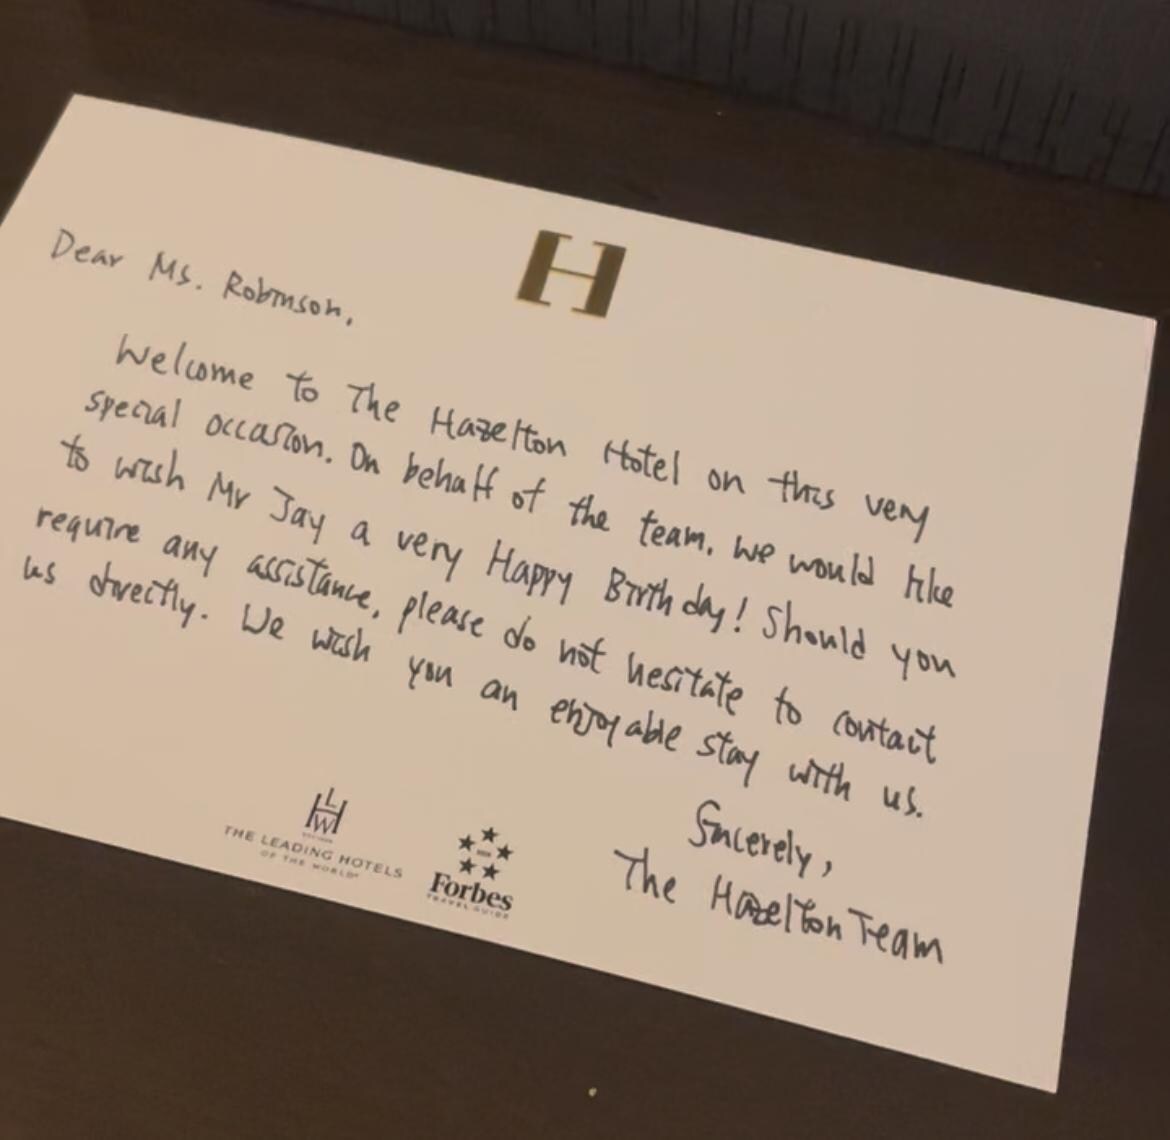 H
Dear Ms. Robinson,
Welcome to The Hazelton Hotel on this very
special occasion. On behalf of the team, we would like
to wish Mr Jay a very Happy Birthday! Should you
require any assistance, please do not hesitate to contact
us directly. We wish you an enjoyable stay with us.
Sincerely,
The Hazelton Team
LHW
THE LEADING HOTELS
OF THE WORLD®
Forbes
TRAVEL GUIDE